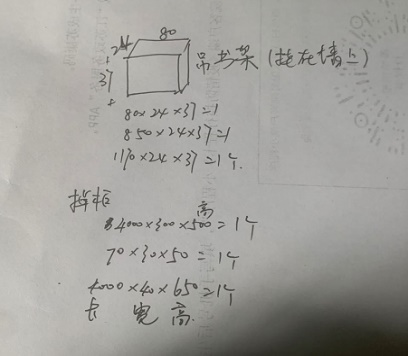 80
24
37
吊书架(挂在墙上)
80×24×37=1
850×24×37=1
1170×24×37=1个.
高
4000×300×500=1个
70×30×50=1个
4000×40×650=1个
长 宽 高.